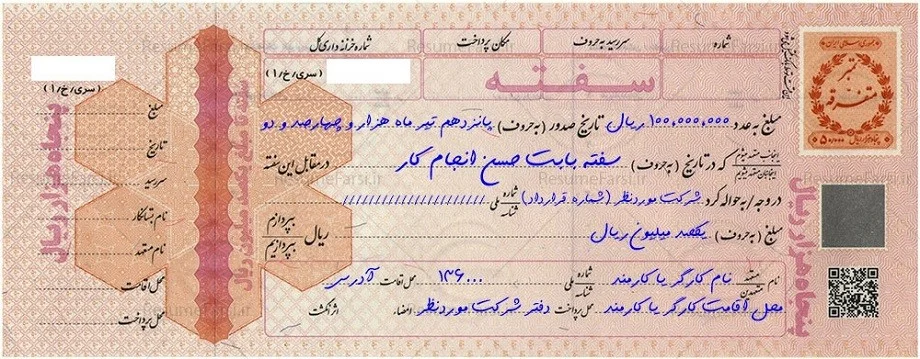 شماره
سررسید به حروف
مکان پرداخت
شماره خزانه داری کل
سفته
(سری/خ/۱)
مبلغ به عدد ۱۰۰,۰۰۰,۰۰۰ ریال تاریخ صدور (به حروف) پانزدهم تیر ماه هزار و چهارصد و دو
اینجانب متعهد میشوم
اینجانبان متعهد میشویم
که در تاریخ (به حروف) سفته بابت حسن انجام کار در مقابل این سفته
در وجه / به حواله کرد شرکت موردنظر (شماره قرارداد) شماره ملی شناسه ///////////////////////
بپردازم
بپردازیم
مبلغ (به حروف) یکصد میلیون ریال ریال
نام متعهد متعهدین نام کارگر یا کارمند شماره ملی شناسه ۱۳۶۰۰۰ محل اقامت آدرس
محل اقامت کارگر یا کارمند محل پرداخت دفتر شرکت موردنظر امضاء اثر انگشت
(سری/خ/۱)
مبلغ
تاریخ
سررسید
نام بستانکار
نام متعهد
محل اقامت
محل پرداخت
پنجاه هزار ریال
سفته تا مبلغ یکصد میلیون ریال
پنجاه هزار ریال
جمهوری اسلامی ایران
تمبر
متفرقه
۵۰۰۰۰ پنجاه هزار ریال
ResumeFarsi.ir